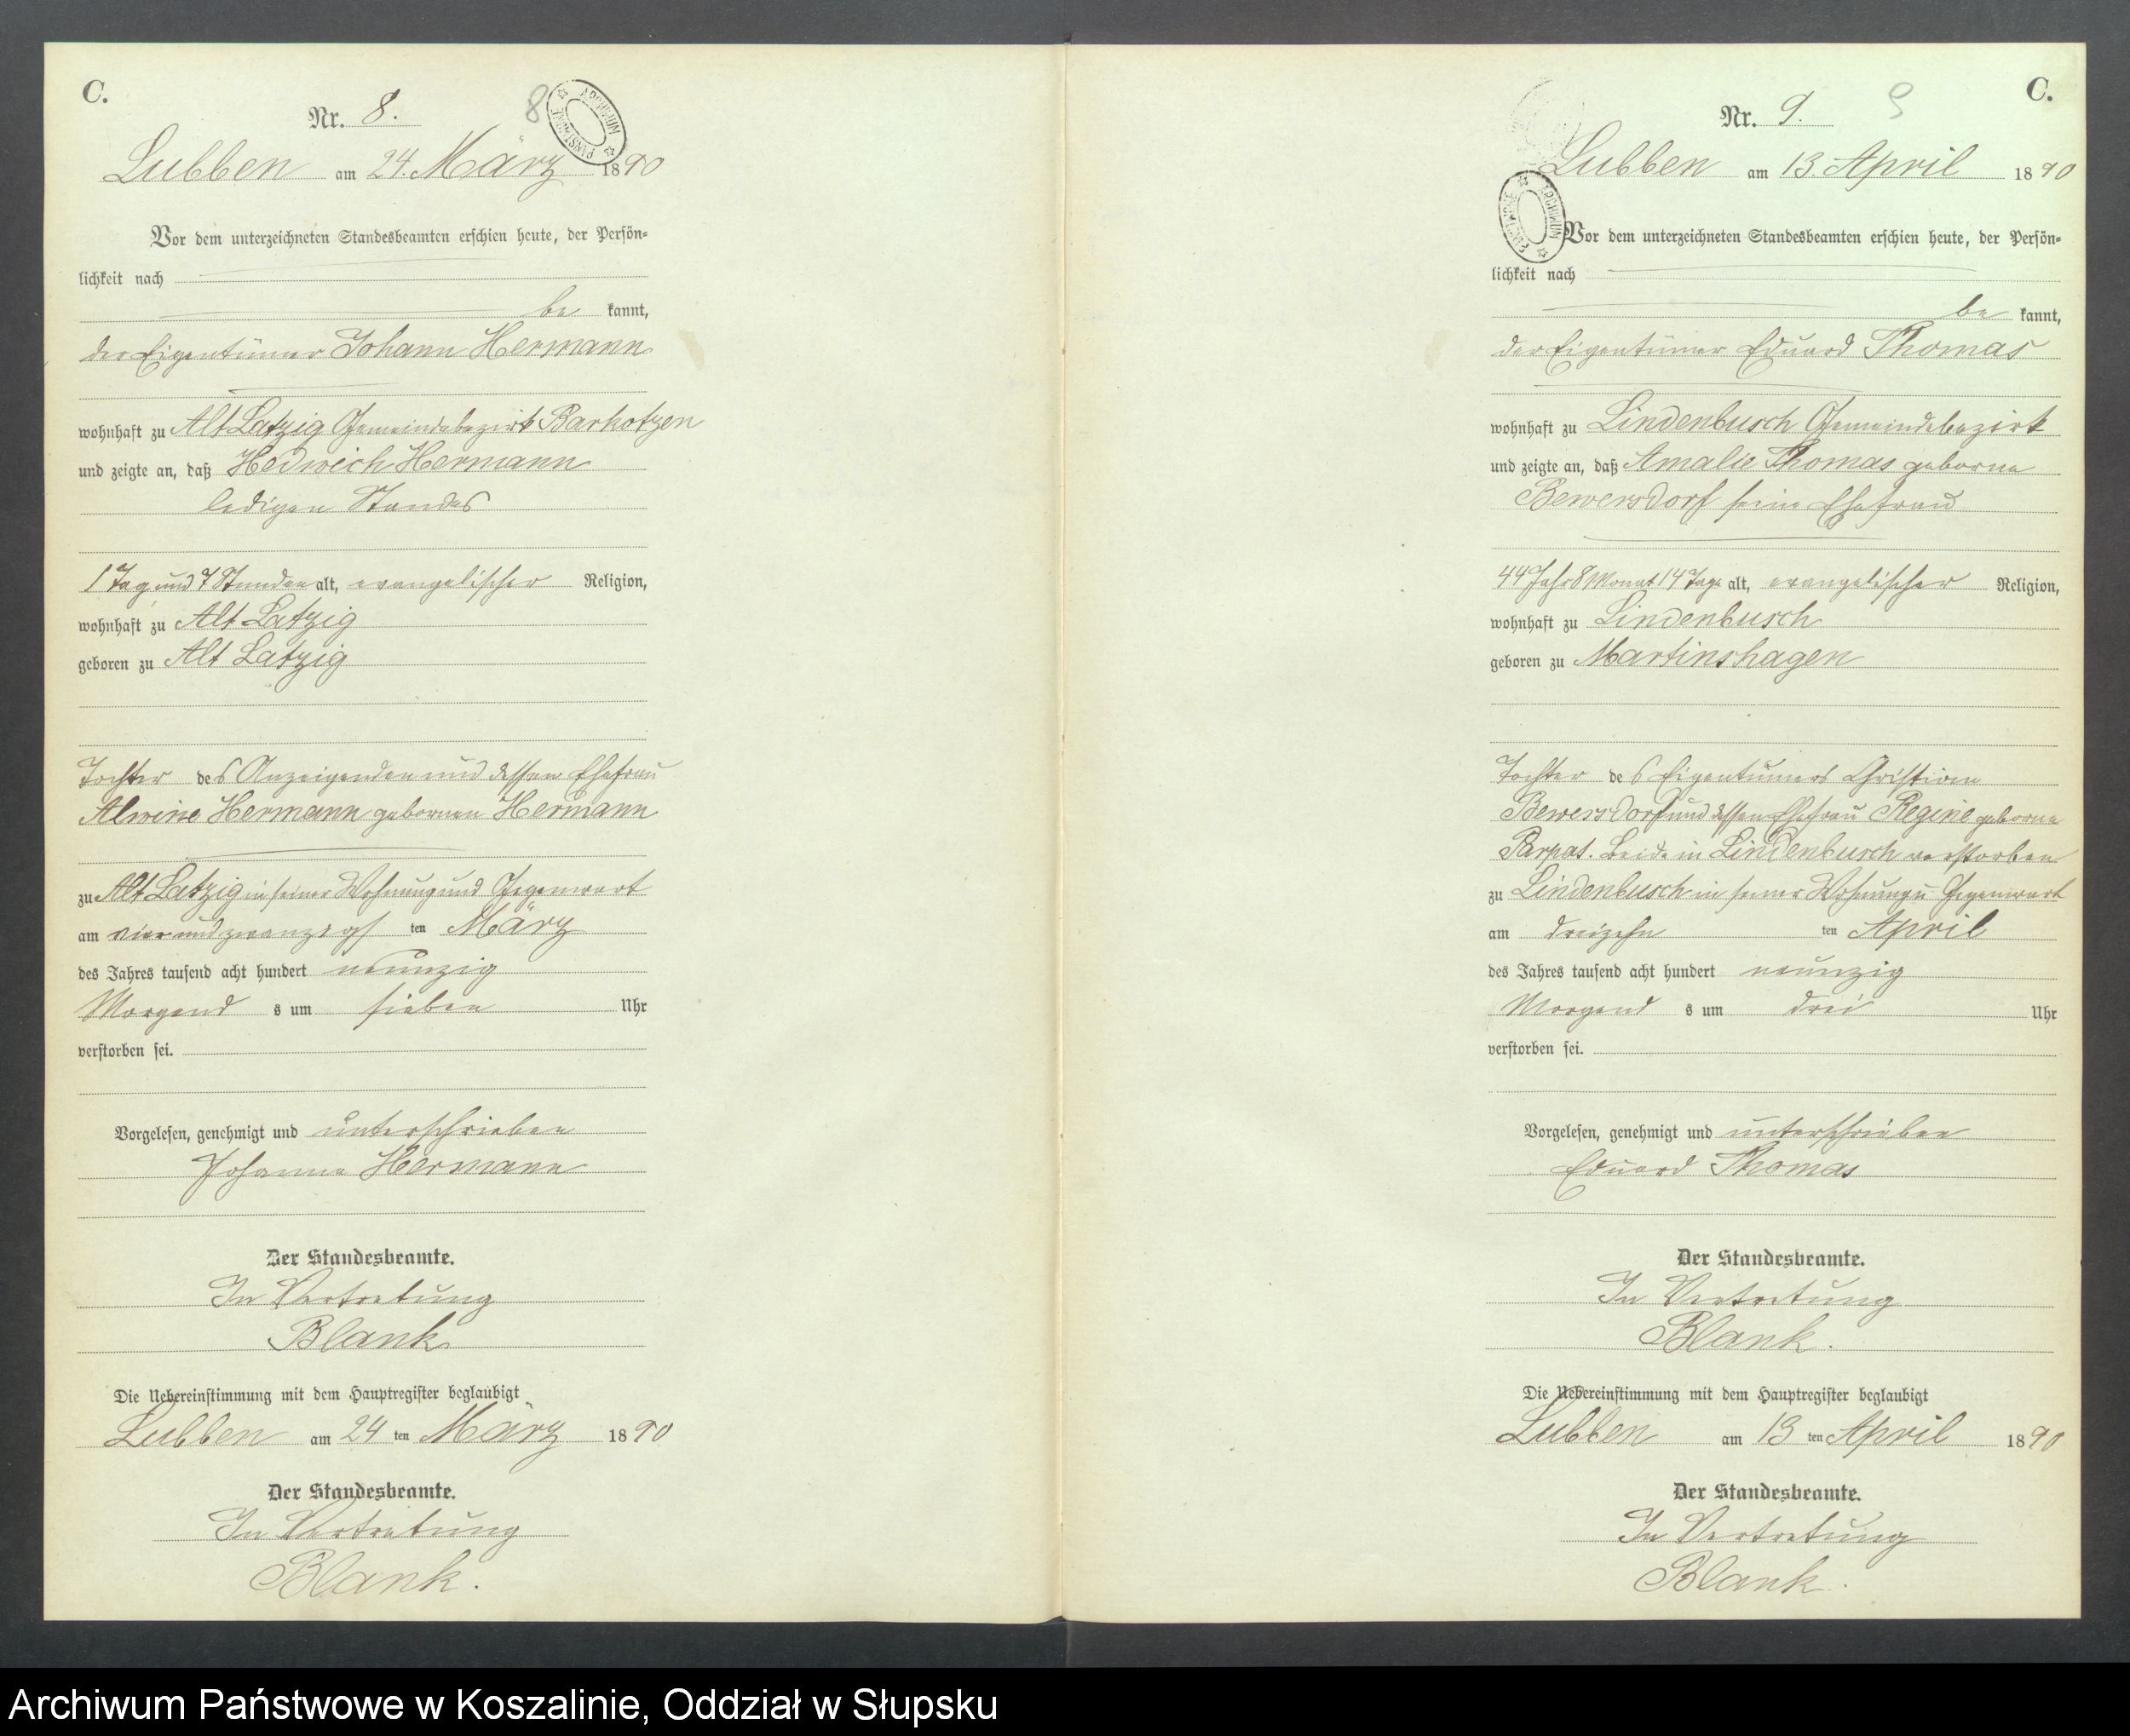 C.
Nr. 8.
8
ARCHIWUM PAŃSTWOWE
Lubben am 24. März 1890
Vor dem unterzeichneten Standesbeamten erschien heute, der Persön-
lichkeit nach
be kannt,
der Eigentümer Johann Hermann
wohnhaft zu Alt Latzig Gemeindebezirk Barkotzen
und zeigte an, daß Hedwich Hermann
ledigen Standes
1 Tag und 7 Stunden alt, evangelischer Religion,
wohnhaft zu Alt Latzig
geboren zu Alt Latzig
Tochter des Anzeigenden und dessen Ehefrau
Alwine Hermann gebornen Hermann
zu Alt Latzig in seiner Wohnung und Gegenwart
am vier und zwanzigst ten März
des Jahres tausend acht hundert neunzig
Morgend s um sieben Uhr
verstorben sei.
Vorgelesen, genehmigt und unterschrieben
Johann Hermann
Der Standesbeamte.
In Vertretung
Blank
Die Uebereinstimmung mit dem Hauptregister beglaubigt
Lubben am 24 ten März 1890
Der Standesbeamte.
In Vertretung
Blank.
C.
Nr. 9.
9
ARCHIWUM PAŃSTWOWE
Lubben am 13. April 1890
Vor dem unterzeichneten Standesbeamten erschien heute, der Persön-
lichkeit nach
be kannt,
der Eigentümer Eduard Thomas
wohnhaft zu Lindenbusch Gemeindebezirk
und zeigte an, daß Amalie Thomas geborne
Bewersdorf seine Ehefrau
44 Jahr 8 Monat 14 Tage alt, evangelischer Religion,
wohnhaft zu Lindenbusch
geboren zu Martinshagen
Tochter des Eigentümers Christian
Bewersdorf und dessen Ehefrau Regine geborne
Parpat. Beide in Lindenbusch verstorben
zu Lindenbusch in seiner Wohnung u Gegenwart
am dreizehn ten April
des Jahres tausend acht hundert neunzig
Morgend s um drei Uhr
verstorben sei.
Vorgelesen, genehmigt und unterschrieben
Eduard Thomas
Der Standesbeamte.
In Vertretung
Blank.
Die Uebereinstimmung mit dem Hauptregister beglaubigt
Lubben am 13 ten April 1890
Der Standesbeamte.
In Vertretung
Blank.
Archiwum Państwowe w Koszalinie, Oddział w Słupsku